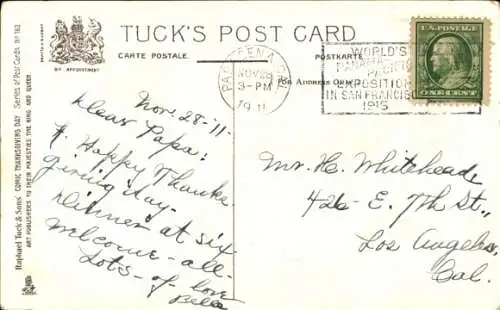 TUCK'S POST CARD
CARTE POSTALE.
POSTKARTE
BY APPOINTMENT
For Address Only
PASADENA, CAL.
NOV 28
3-PM
1911
WORLD'S
PANAMA PACIFIC
EXPOSITION
IN SAN FRANCISCO
1915
U.S. POSTAGE
ONE CENT
Raphael Tuck & Sons' COMIC THANKSGIVING DAY Series of Post Cards No 162
ART PUBLISHERS TO THEIR MAJESTIES THE KING AND QUEEN
Nov. 28-11-
Dear Papa:
A Happy Thanks-
giving day.
Dinner at six
Welcome-all-
Lots-of-love
Bella
Mr. H. Whitehead
426- E. 7th St.,
Los Angeles,
Cal.